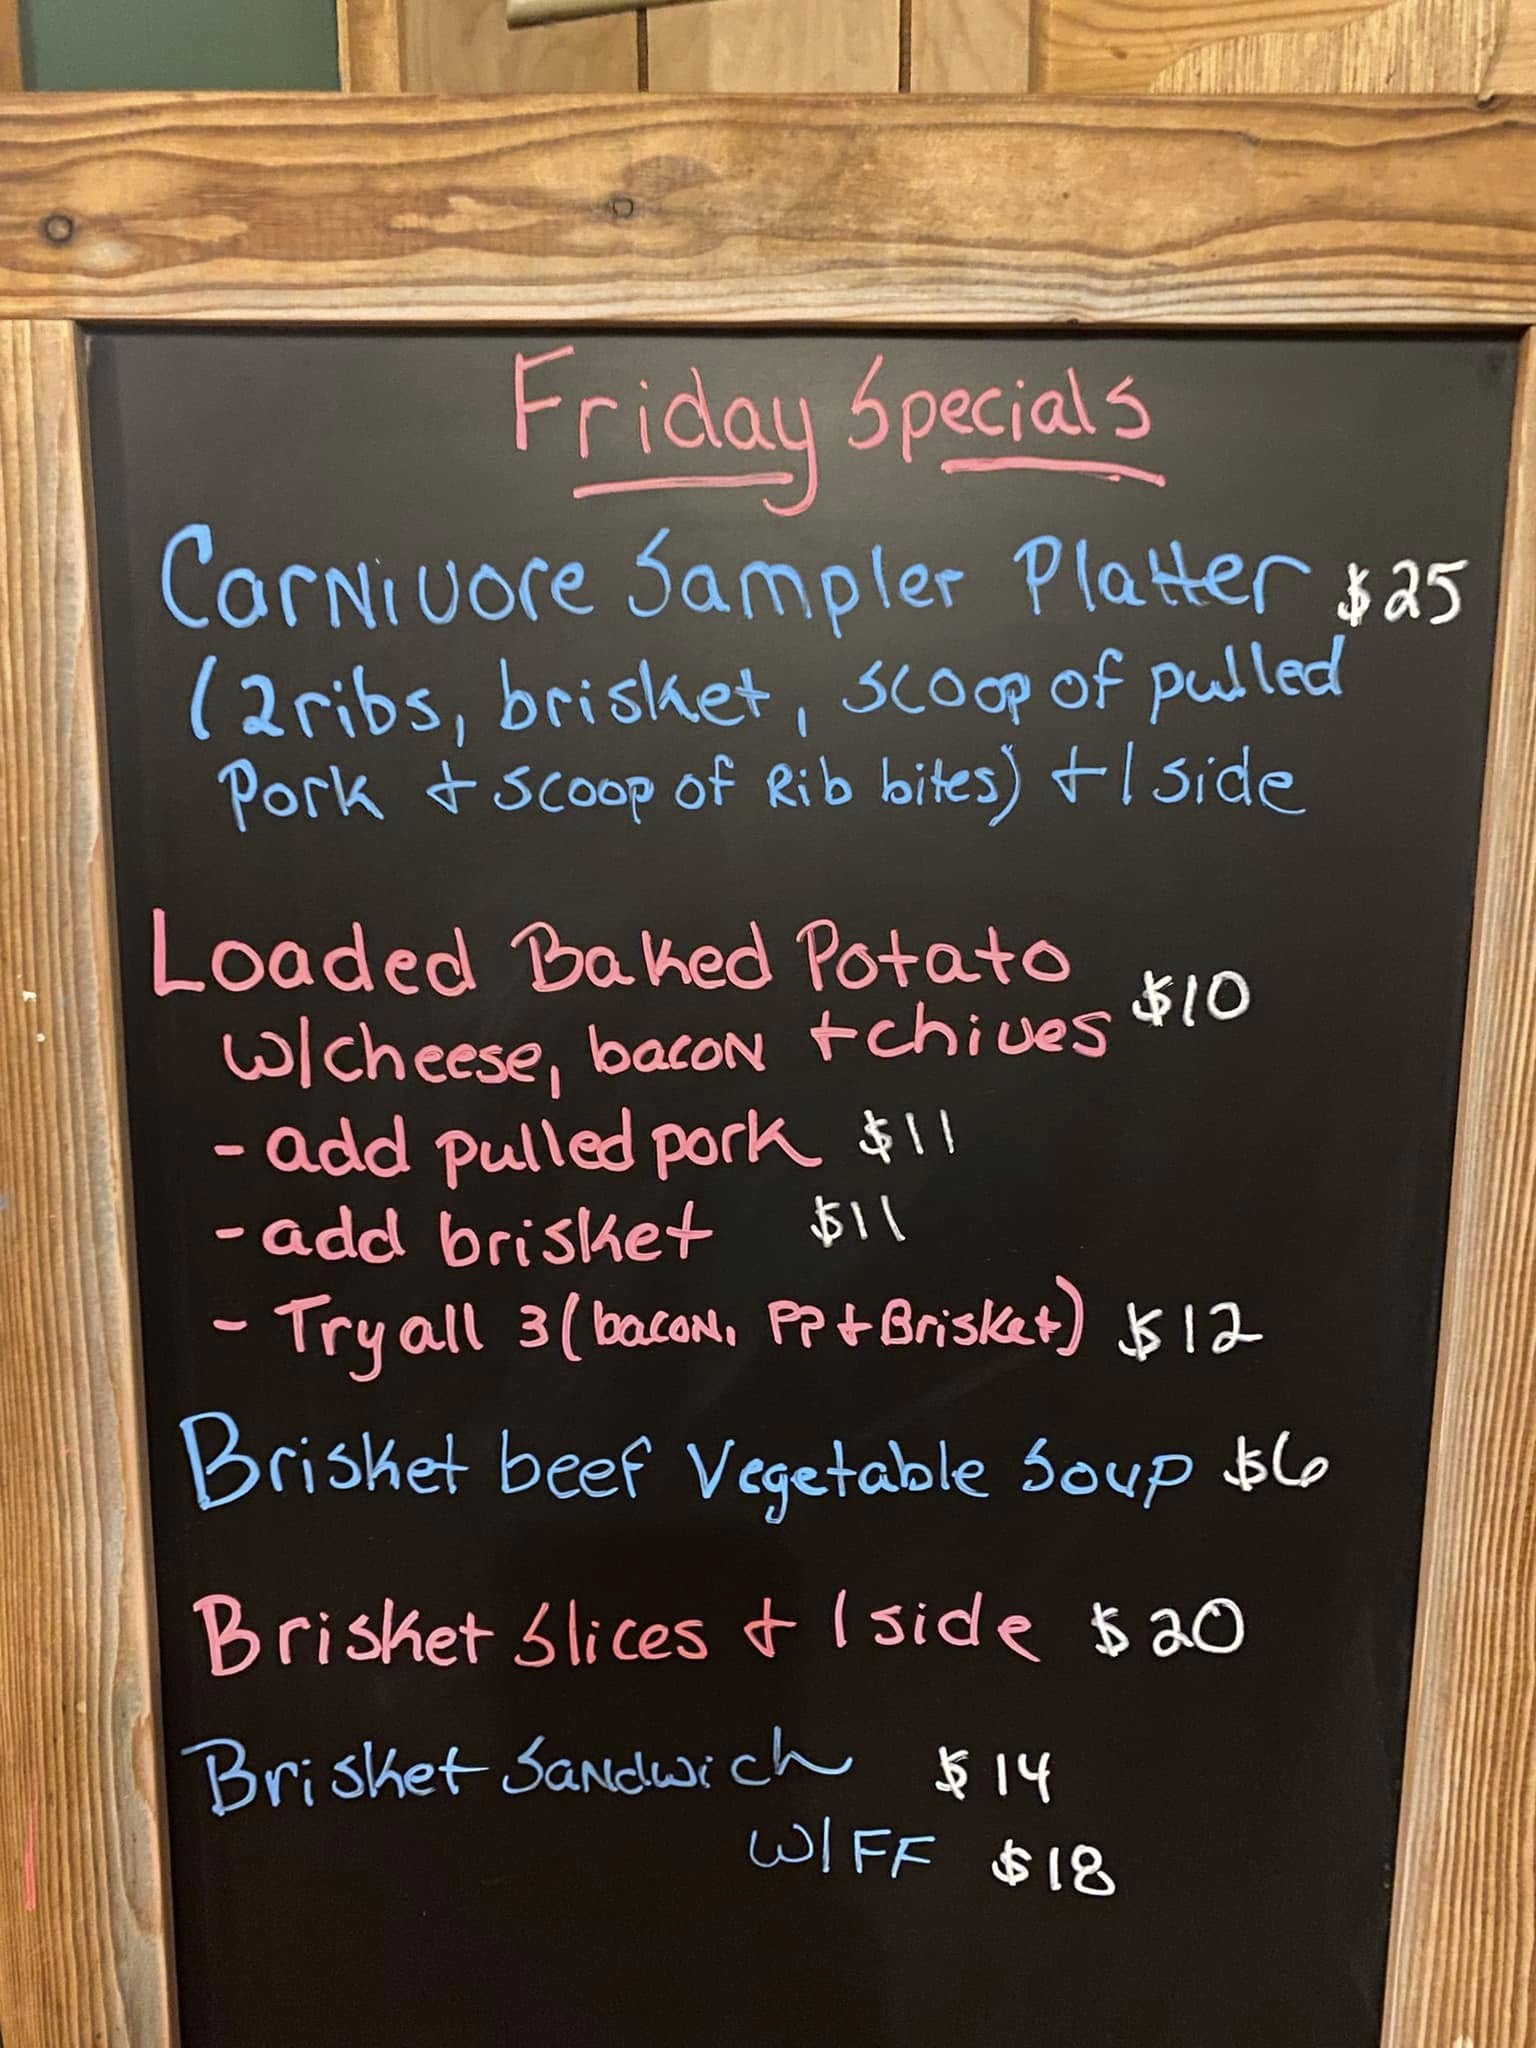 Friday Specials
Carnivore Sampler Platter $25
(2 ribs, brisket, scoop of pulled
Pork + scoop of Rib bites) + 1 side
Loaded Baked Potato
w/cheese, bacon + chives $10
- add pulled pork $11
- add brisket $11
- Try all 3 (bacon, PP + Brisket) $12
Brisket beef Vegetable Soup $6
Brisket Slices + 1 side $20
Brisket Sandwich $14
W/FF $18